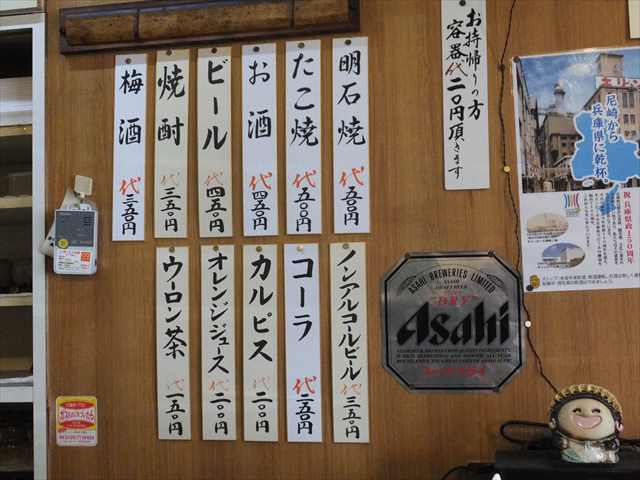 明石焼 代 五〇〇円
たこ焼 代 五〇〇円
お酒 代 四五〇円
ビール 代 四五〇円
焼酎 代 三五〇円
梅酒 代 三五〇円
ノンアルコールビール 代 三五〇円
コーラ 代 二五〇円
カルピス 代 二〇〇円
オレンジジュース 代 二〇〇円
ウーロン茶 代 一五〇円
お持帰りの方
容器代二〇円頂きます
尼崎から
兵庫県に乾杯
祝 兵庫県政150周年
ASAHI BREWERIES LIMITED
"DRY"
Asahi